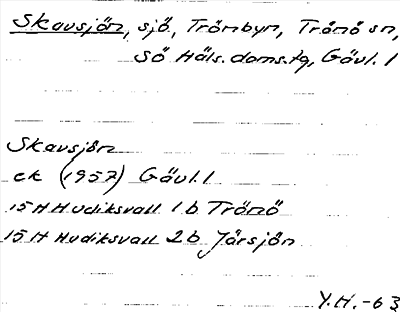 Skavsjön, sjö, Trömbyn, Trönö sn,
Sö Häls. doms.tg, Gävl. l
Skavsjön
ek (1957) Gävl. l
15 H Hudiksvall 1 b Trönö
15 H Hudiksvall 2 b Järsjön
Y.H. -63